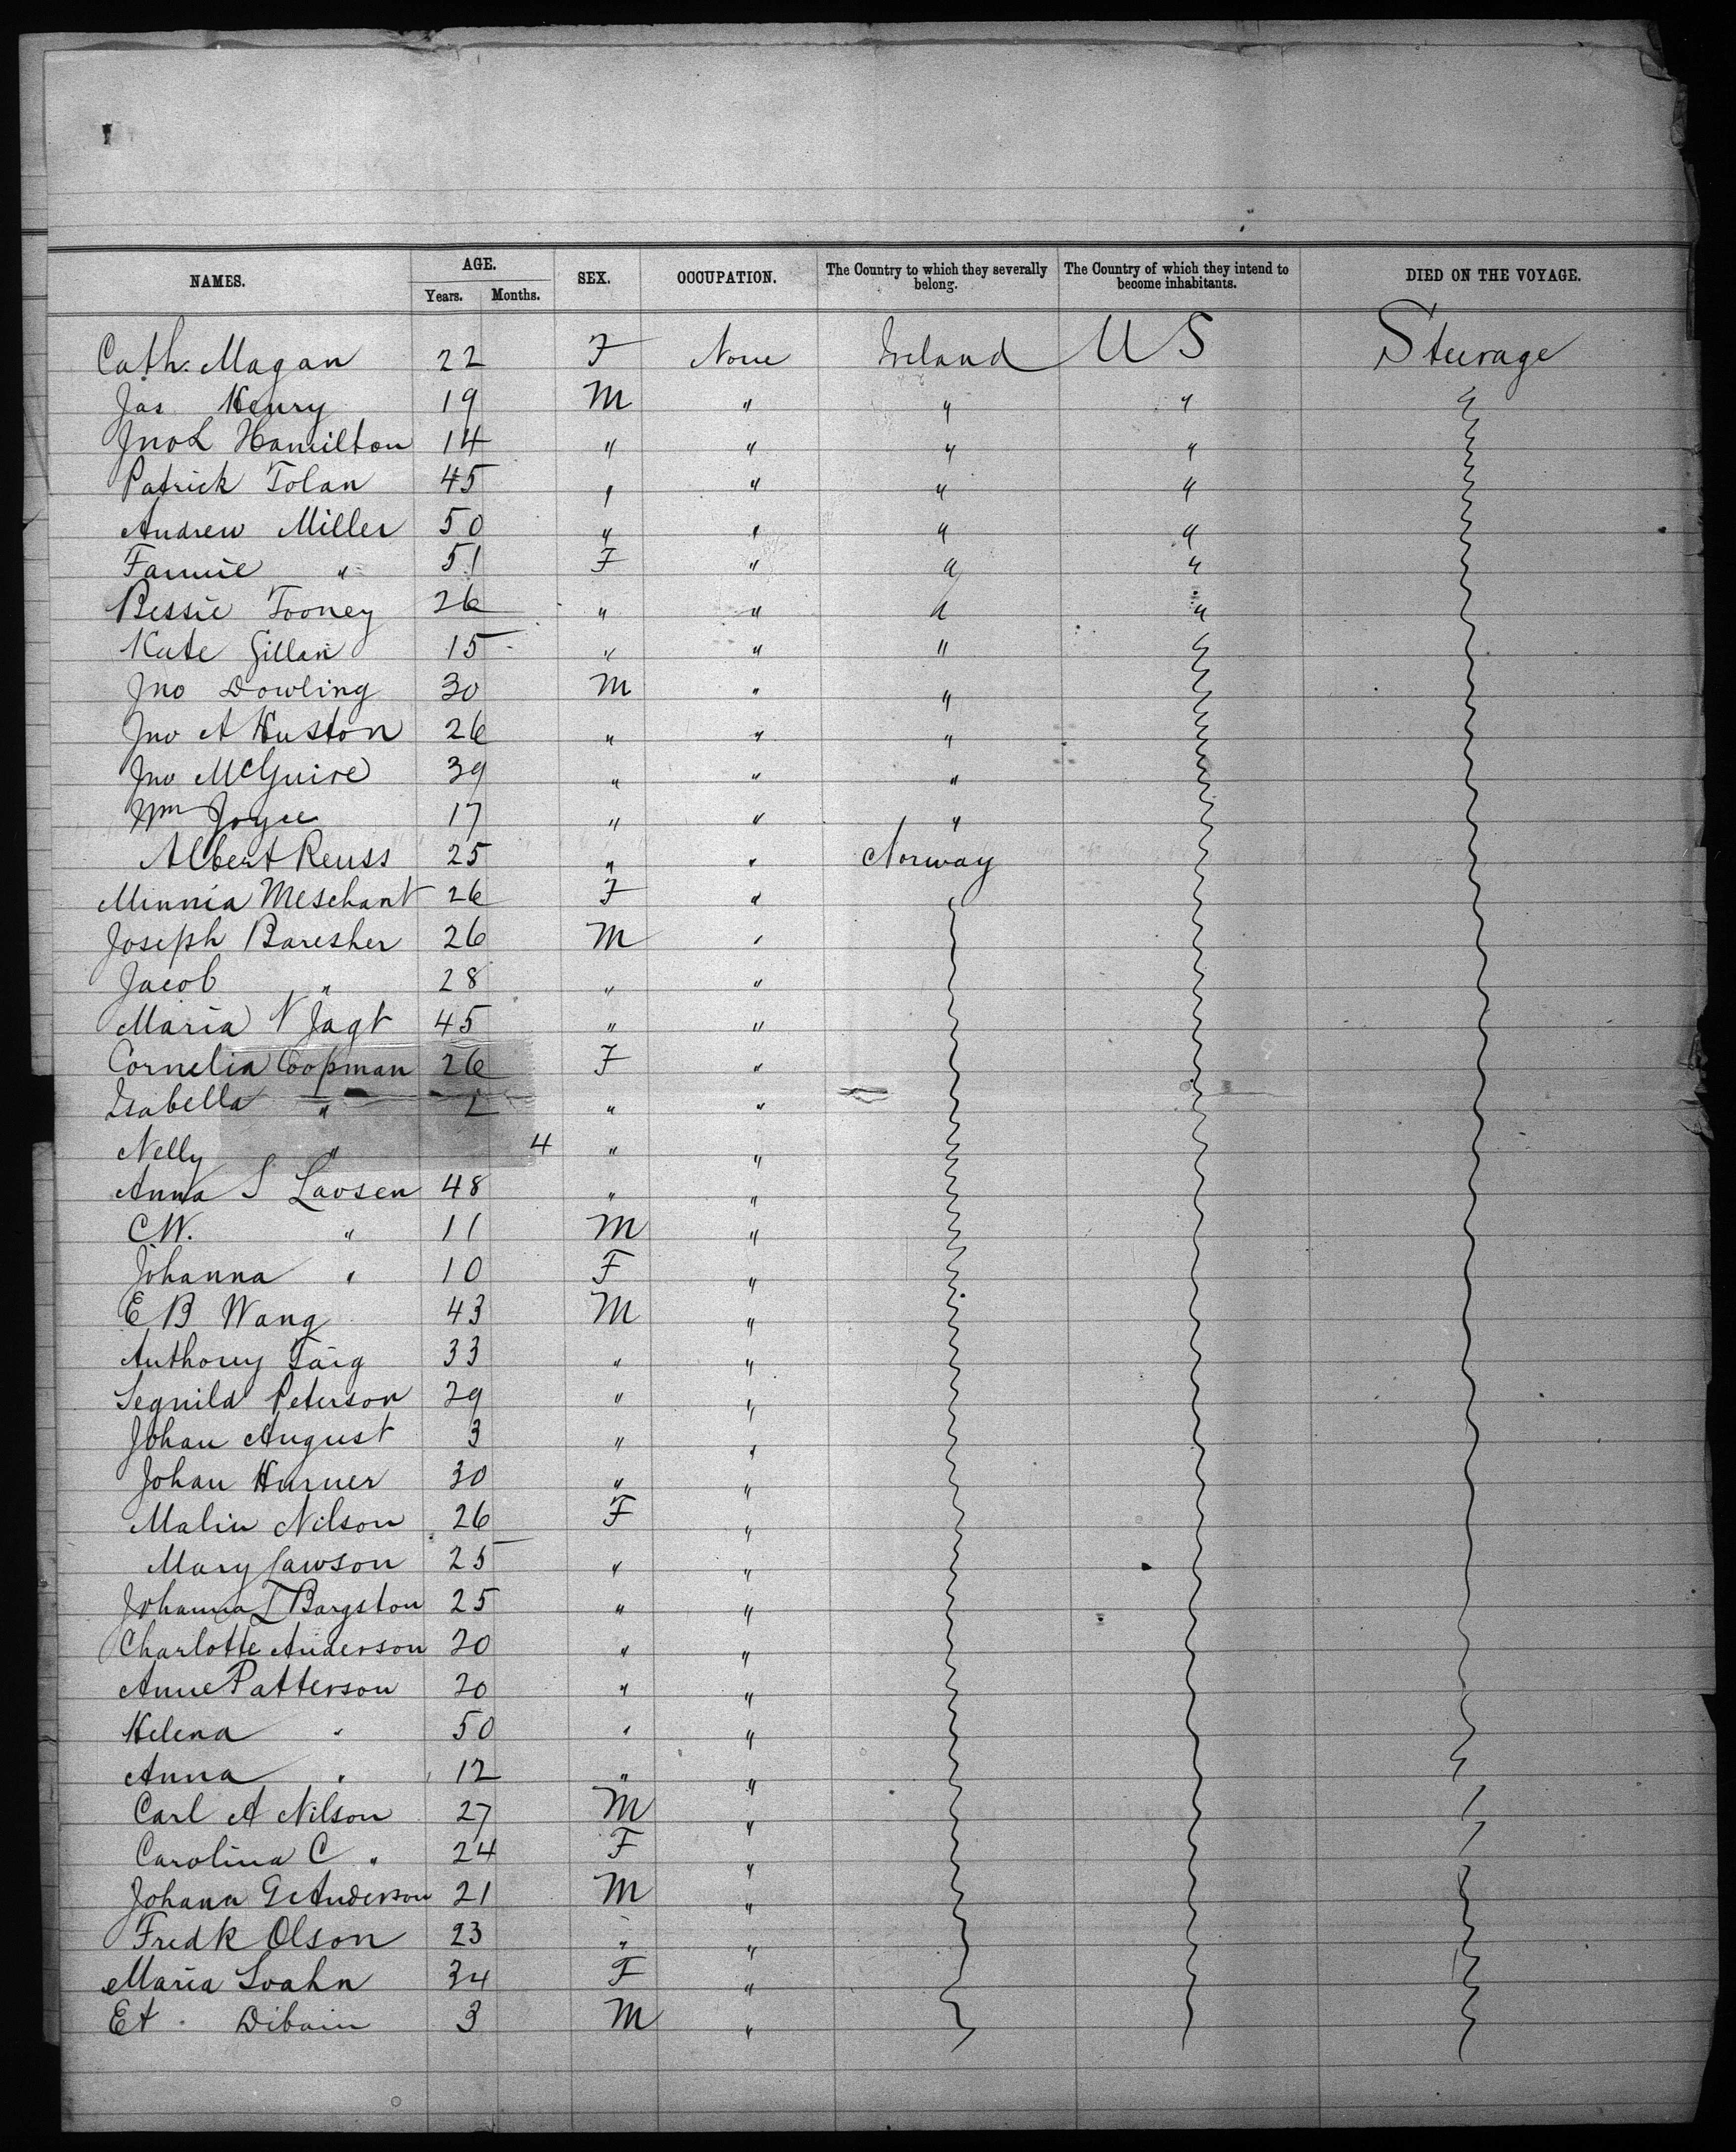 NAMES. AGE. SEX. OCCUPATION. The Country to which they severally belong. The Country of which they intend to become inhabitants. DIED ON THE VOYAGE.
Years. Months.
Cath. Magan 22 F None Ireland U S Steerage
Jas Henry 19 M " " " "
Jno L Hamilton 14 " " " "
Patrick Tolan 45 " " " "
Andrew Miller 50 " " " "
Fannie " 51 F " " "
Bessie Tooney 26 " " " "
Kate Gillan 15 " " " "
Jno Dowling 30 M " "
Jno A Huston 26 " " "
Jno McGuire 39 " " "
Wm Joyce 17 " " "
Albert Reuss 25 " " Norway
Minnia Meschant 26 F "
Joseph Baresher 26 M "
Jacob " 28 " "
Maria V Jagt 45 " "
Cornelia Coopman 26 F "
Isabella " 2 " "
Nelly " 4 " "
Anna S Lavsen 48 " "
C.W. " 11 M "
Johanna " 10 F "
E B Wang 43 M "
Anthony Taig 33 " "
Segnild Peterson 29 " "
Johan August 3 " "
Johan Hurner 30 " "
Malin Nilson 26 F "
Mary Lawson 25 " "
Johanna L Bargston 25 " "
Charlotte Anderson 20 " "
Anne Patterson 20 " "
Helena " 50 " "
Anna " 12 " "
Carl A Nilson 27 M "
Carolina C " 24 F "
Johann G Anderson 21 M "
Fredk Olson 23 " "
Maria Svahn 34 F "
Et Dibain 3 M "